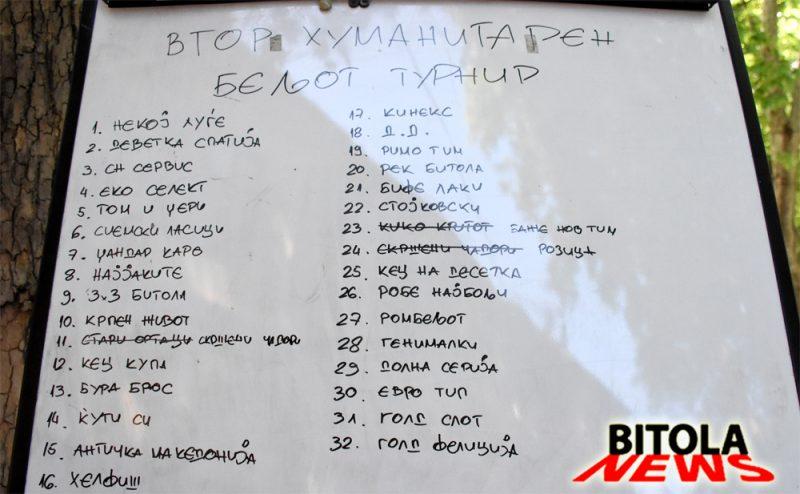 ВТОР ХУМАНИТАРЕН
БЕЉОТ ТУРНИР
1. НЕКОЈ ЛУЃЕ
2. ДЕВЕТКА СПАТИЈА
3. СН СЕРВИС
4. ЕКО СЕЛЕКТ
5. ТОМ И ЏЕРИ
6. СИЕМСКИ ЛАСИЦИ
7. ЏАНДАР КАРО
8. НАЈЈАКИТЕ
9. 3Х3 БИТОЛА
10. КРПЕН ЖИВОТ
11. СТАРИ ОРТАЦИ СКРШЕНИ ЧАДОРИ
12. КЕЦ КУПА
13. БУРА БРОС
14. КУТИ СИ
15. АНТИЧКА МАКЕДОНИЈА
16. ХЕЛФИШ
17. КИНЕКС
18. Д.Д.
19. РИМО ТИМ
20. РЕК БИТОЛА
21. БИФЕ ЛАКИ
22. СТОЈКОВСКИ
23. КИКО КРИТОТ БАШЕ НОВ ТИМ
24. СКРШЕНИ ЧАДОРИ РОЗИЦА
25. КЕЦ НА ДЕСЕТКА
26. РОБЕ НАЈБОЉИ
27. РОМБЕЉОТ
28. ГЕНИМАЛКИ
29. ДОЛНА СЕРИЈА
30. ЕВРО ТИП
31. ГОЛД СЛОТ
32. ГОЛД ФЕЛИЦИЈА
BITOLA
NEWS